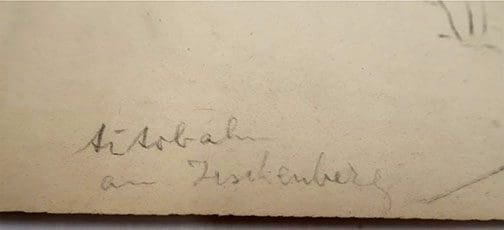 Autobahn
am Irschenberg